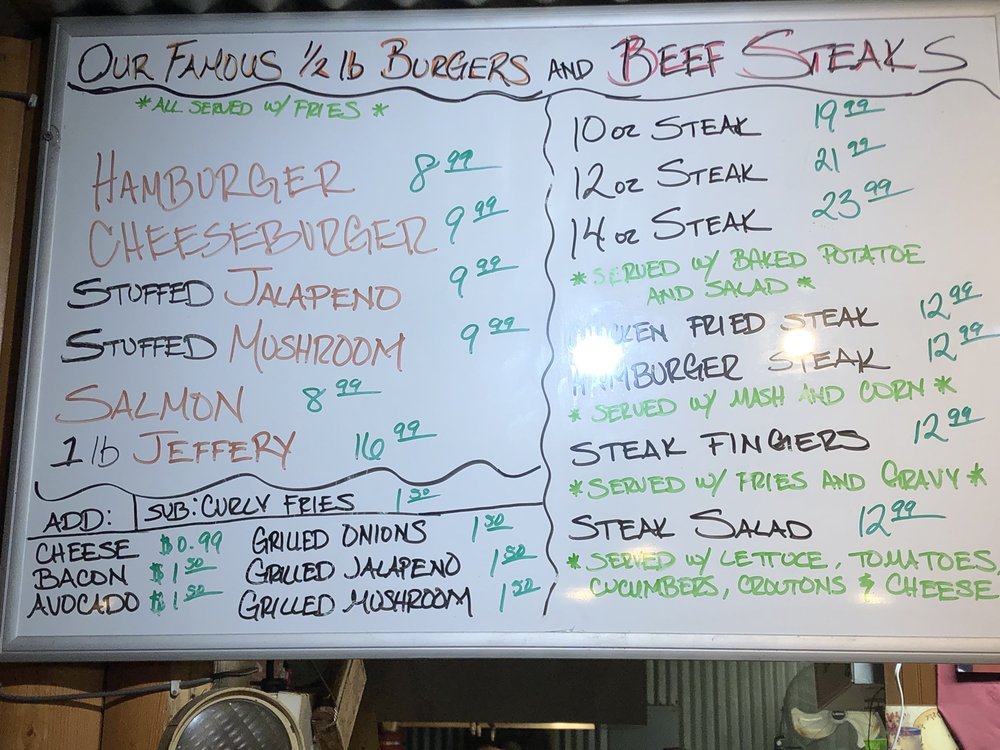 OUR FAMOUS 1/2 lb BURGERS AND BEEF STEAKS
*ALL SERVED W/ FRIES *
HAMBURGER 8 99
CHEESEBURGER 9 99
STUFFED JALAPENO 9 99
STUFFED MUSHROOM 9 99
SALMON 8 99
1 lb JEFFERY 16 99
ADD: SUB: CURLY FRIES 1 50
CHEESE $0.99 GRILLED ONIONS 1 50
BACON $1 50 GRILLED JALAPENO 1 50
AVOCADO $1 50 GRILLED MUSHROOM 1 50
10 oz STEAK 19 99
12 oz STEAK 21 99
14 oz STEAK 23 99
*SERVED W/ BAKED POTATOE
AND SALAD *
FRIED STEAK 12 99
HAMBURGER STEAK 12 99
*SERVED W/ MASH AND CORN *
STEAK FINGERS 12 99
*SERVED W/ FRIES AND GRAVY *
STEAK SALAD 12 99
*SERVED W/ LETTUCE, TOMATOES,
CUCUMBERS, CROUTONS & CHEESE